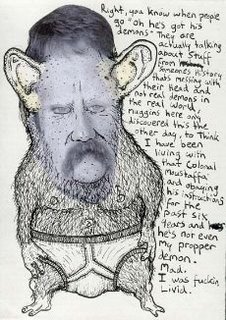 Right, you know when people
go "oh he's got his
demons" They are
actually talking
about stuff
from
someones history
thats messing with
their head And
not real demons in
the real world,
muggins here only
discovered this the
other day. to think
I have been
living with
that Colonal
moustaffa
and obaying
his instructions
for the
past six
years and
he's not even
My propper
demon.
Mad.
I was fuckin
Livid.